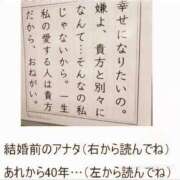 幸せになりたいの。
嫌よ、貴方と別々に
なんて…そんなの私
じゃないから。一生
私の愛する人は貴方
だから、おねがい。
結婚前のアナタ(右から読んでね)
あれから40年…(左から読んでね)